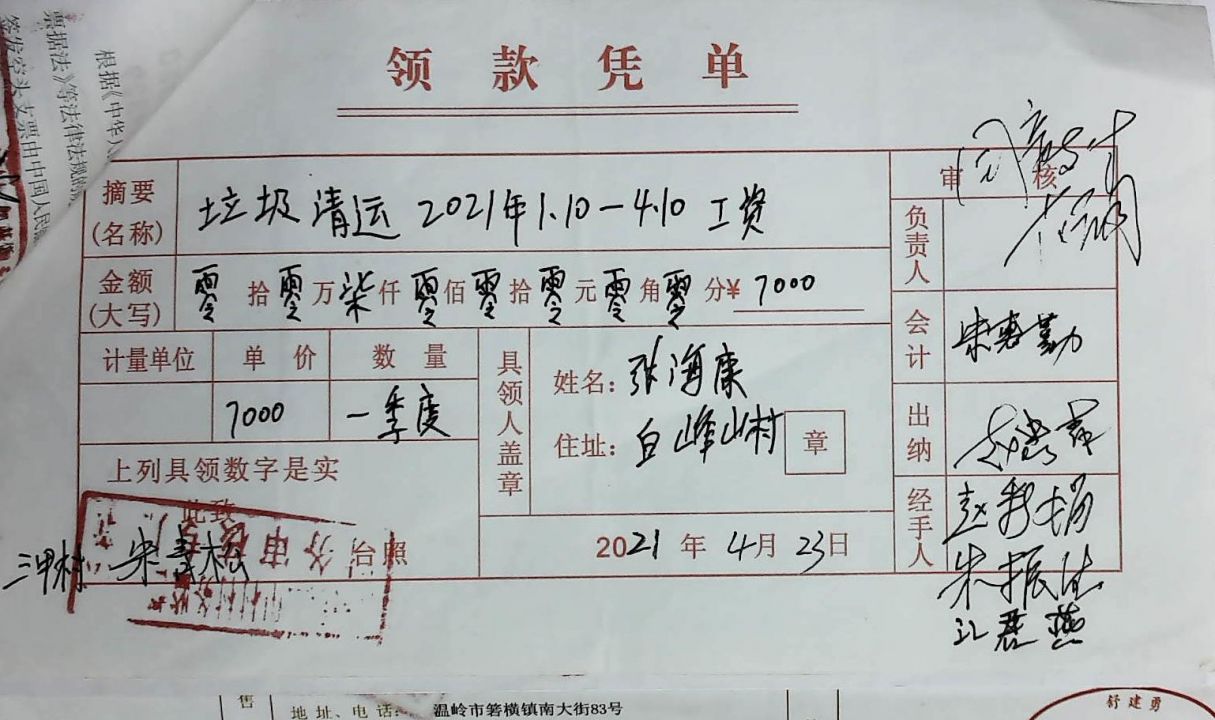 根据《中华人
票据法》等法律法规的
签发空头支票由中国人民
领款凭单
摘要(名称) 垃圾清运 2021年1.10-4.10 工资
审核
金额(大写) 零拾零万柒仟零佰零拾零元零角零分¥ 7000
负责人
计量单位 单价 数量
7000 一季度
具领人盖章
姓名: 张海康
住址: 白峰山村 章
会计 朱惠勤
出纳
上列具领数字是实
此致
三甲村 台照
2021年4月23日
经手人
朱振法
江君燕
售 地址、电话: 温岭市箬横镇南大街83号
舒建勇